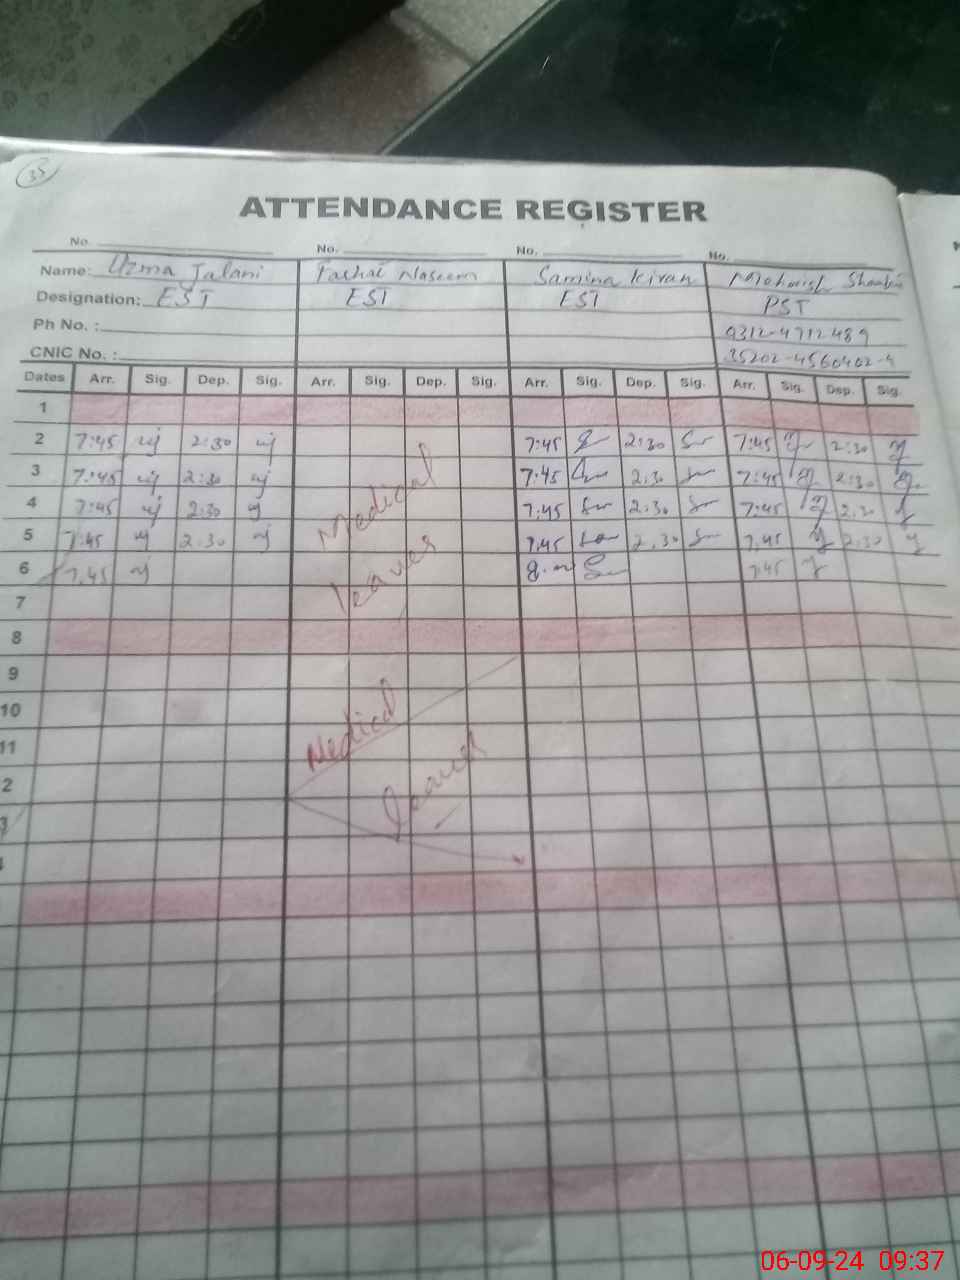 35
ATTENDANCE REGISTER
No. No. No. No.
Name: Uzma Jalani Farhat Naseem Samina Kiran Mehwish
Designation: EST EST EST PST
Ph No. : 0312-4712489
CNIC No. : 35202-4560402-4
Dates Arr. Sig. Dep. Sig. Arr. Sig. Dep. Sig. Arr. Sig. Dep. Sig. Arr. Sig. Dep. Sig.
1
2 7:45 uj 2:30 uj 7:45 2:30 7:45 2:30
3 7:45 uj 2:30 uj 7:45 2:30 7:45 2:30
4 7:45 uj 2:30 7:45 2:30 7:45 2:30
5 7:45 uj 2:30 uj 7.45 2.30 7.45 2:30
6 7.45 uj 7:45
Medical
leaves
7
8
9
10
11
2
3
Medical
leaves
06-09-24 09:37